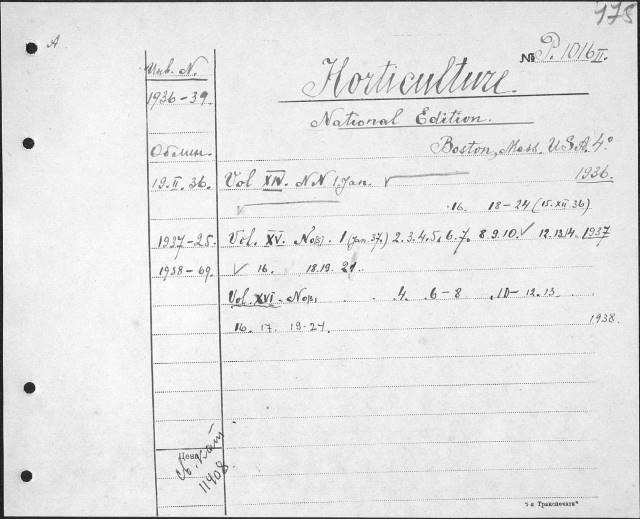 178
A
№ P. 1016 II.
Horticulture.
National Edition.
Boston, Mass. U.S.A. 4°
Инв. N.
1936-39.
Обмѣн.
19.II.36. Vol XIV. N N 1 Jan. 1936.
16. 18-24 (15.XII 36)
1937-25. Vol. XV. No(s). 1 (Jan. 37.) 2. 3. 4. 5. 6. 7. 8 9. 10. 12. 13. 14. 1937
1938-69. 16. 18. 19. 21.
Vol. XVI. No(s) 4. 6-8 10- 12. 13.
16. 17. 19-24. 1938.
Цена
11408
1-я Транспечать